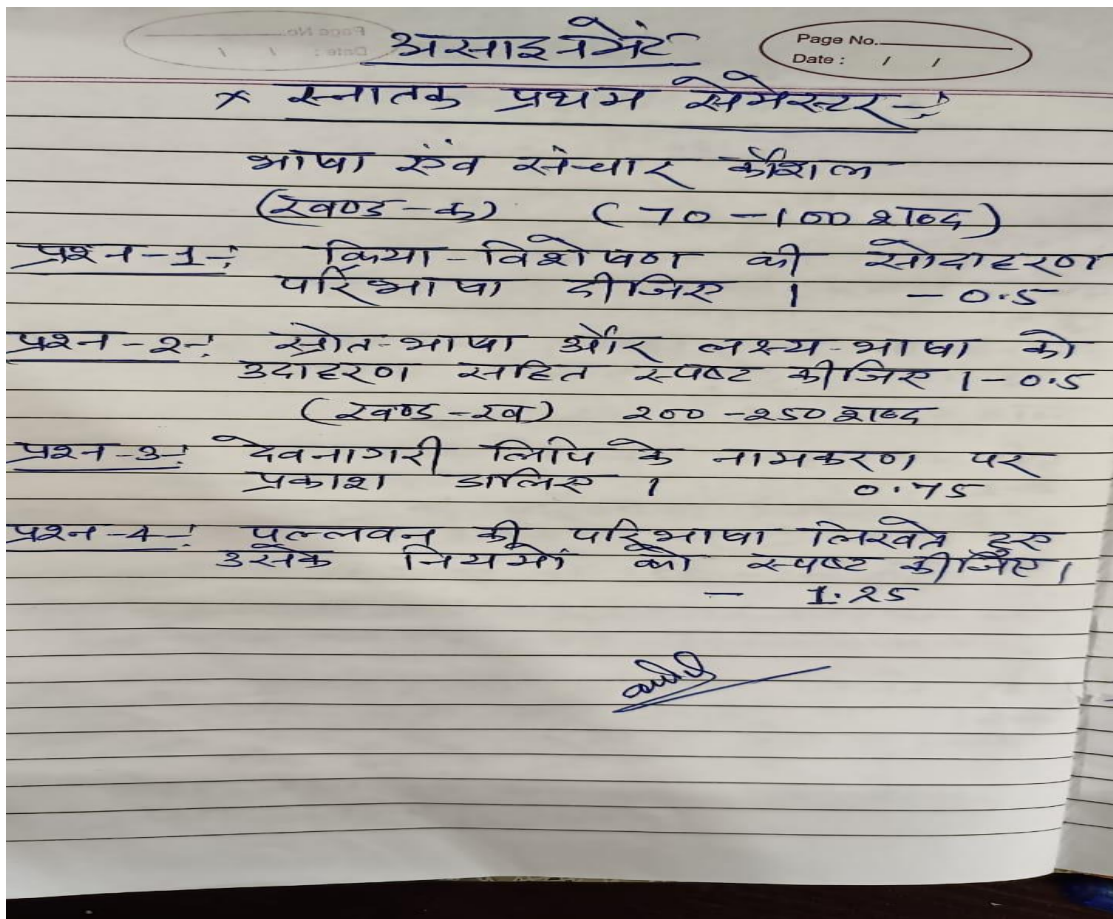 असाइनमेंट
Page No.
Date : / /
x स्नातक प्रथम सेमेस्टर -:
भाषा एंव संचार कौशल
(खण्ड - क) (70 - 100 शब्द)
प्रश्न -1-: क्रिया - विशेषण की सोदाहरण
परिभाषा दीजिए । - 0.5
प्रश्न -2-: स्रोत-भाषा और लक्ष्य-भाषा को
उदाहरण सहित स्पष्ट कीजिए । - 0.5
(खण्ड - ख) 200 - 250 शब्द
प्रश्न -3-: देवनागरी लिपि के नामकरण पर
प्रकाश डालिए । 0.75
प्रश्न -4-: पल्लवन की परिभाषा लिखते हुए
उसके नियमों को स्पष्ट कीजिए ।
- 1.25